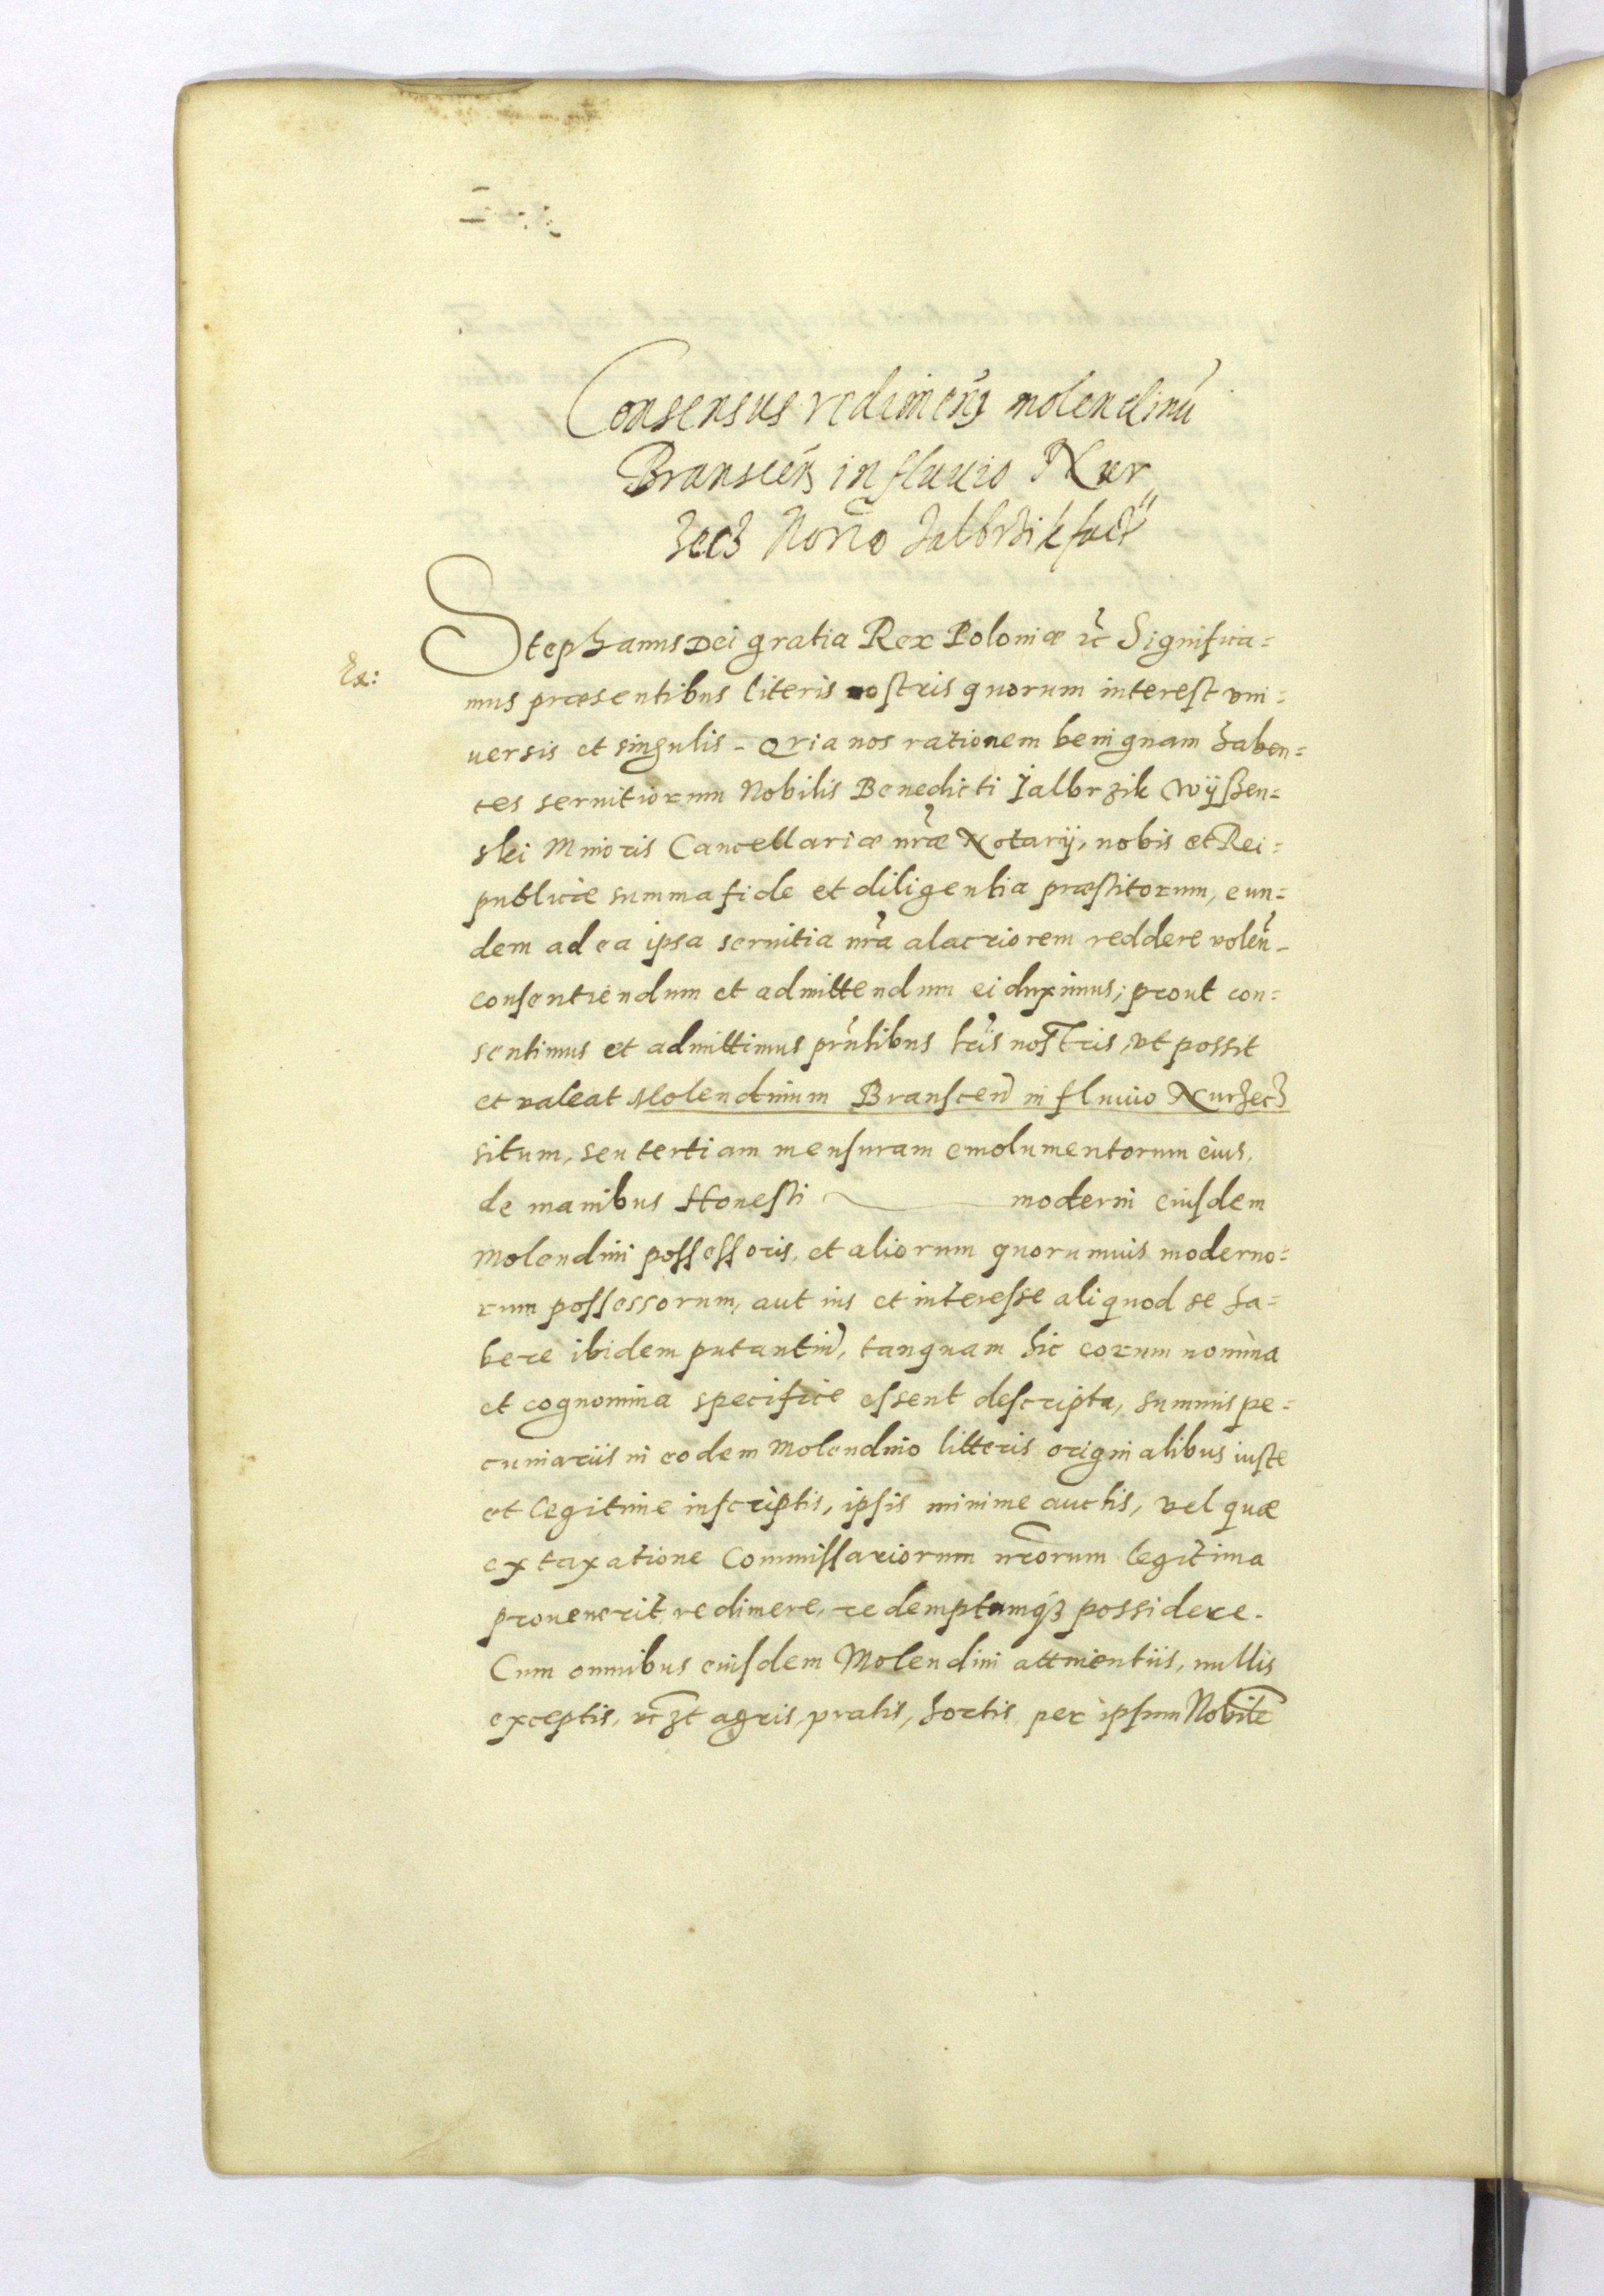 Consensus redimen̄ molendinū
Branscen̄ in fluuio Nur
zecz Nor̄io Jalbrzik fact̄
Stephanus Dei gratia Rex Poloniæ ꝛc̄ Significa=
Ex:
mus præsentibus literis nostris quorum interest vni=
uersis et singulis - Quia nos rationem benignam haben=
tes seruitiorum Nobilis Benedicti Jalbrzik Wyssen=
ski Minoris Cancellariæ nr̄æ Notarij, nobis et Rei=
publicæ summa fide et diligentia præstitorum, eun=
dem ad ea ipsa seruitia nr̄a alacriorem reddere volen̄-
consentiendum et admittendum ei duximus; prout con=
sentimus et admittimus pr̄ntibus lr̄is nostris, vt possit
et valeat Molendinum Branscen̄ in fluuio Nurzecz
situm, seu tertiam mensuram emolumentorum eius,
de manibus Honesti moderni eiusdem
Molendini possessoris, et aliorum quorumuis moderno=
rum possessorum, aut ius et interesse aliquod se ha=
bere ibidem putantiū, tanquam hic eorum nomina
et cognomina specifice essent descripta, summis pe=
cuniariis in eodem Molendino litteris originalibus iuste
et legitime inscriptis, ipsis minime auctis, vel quæ
ex taxatione Commissariorum nr̄orum legitima
prouenerit, redimere, redemptumqꝫ possidere.
Cum omnibus eiusdem Molendini attinentiis, nullis
exceptis, vc̄zt agris, pratis, hortis per ipsum Nobile̅